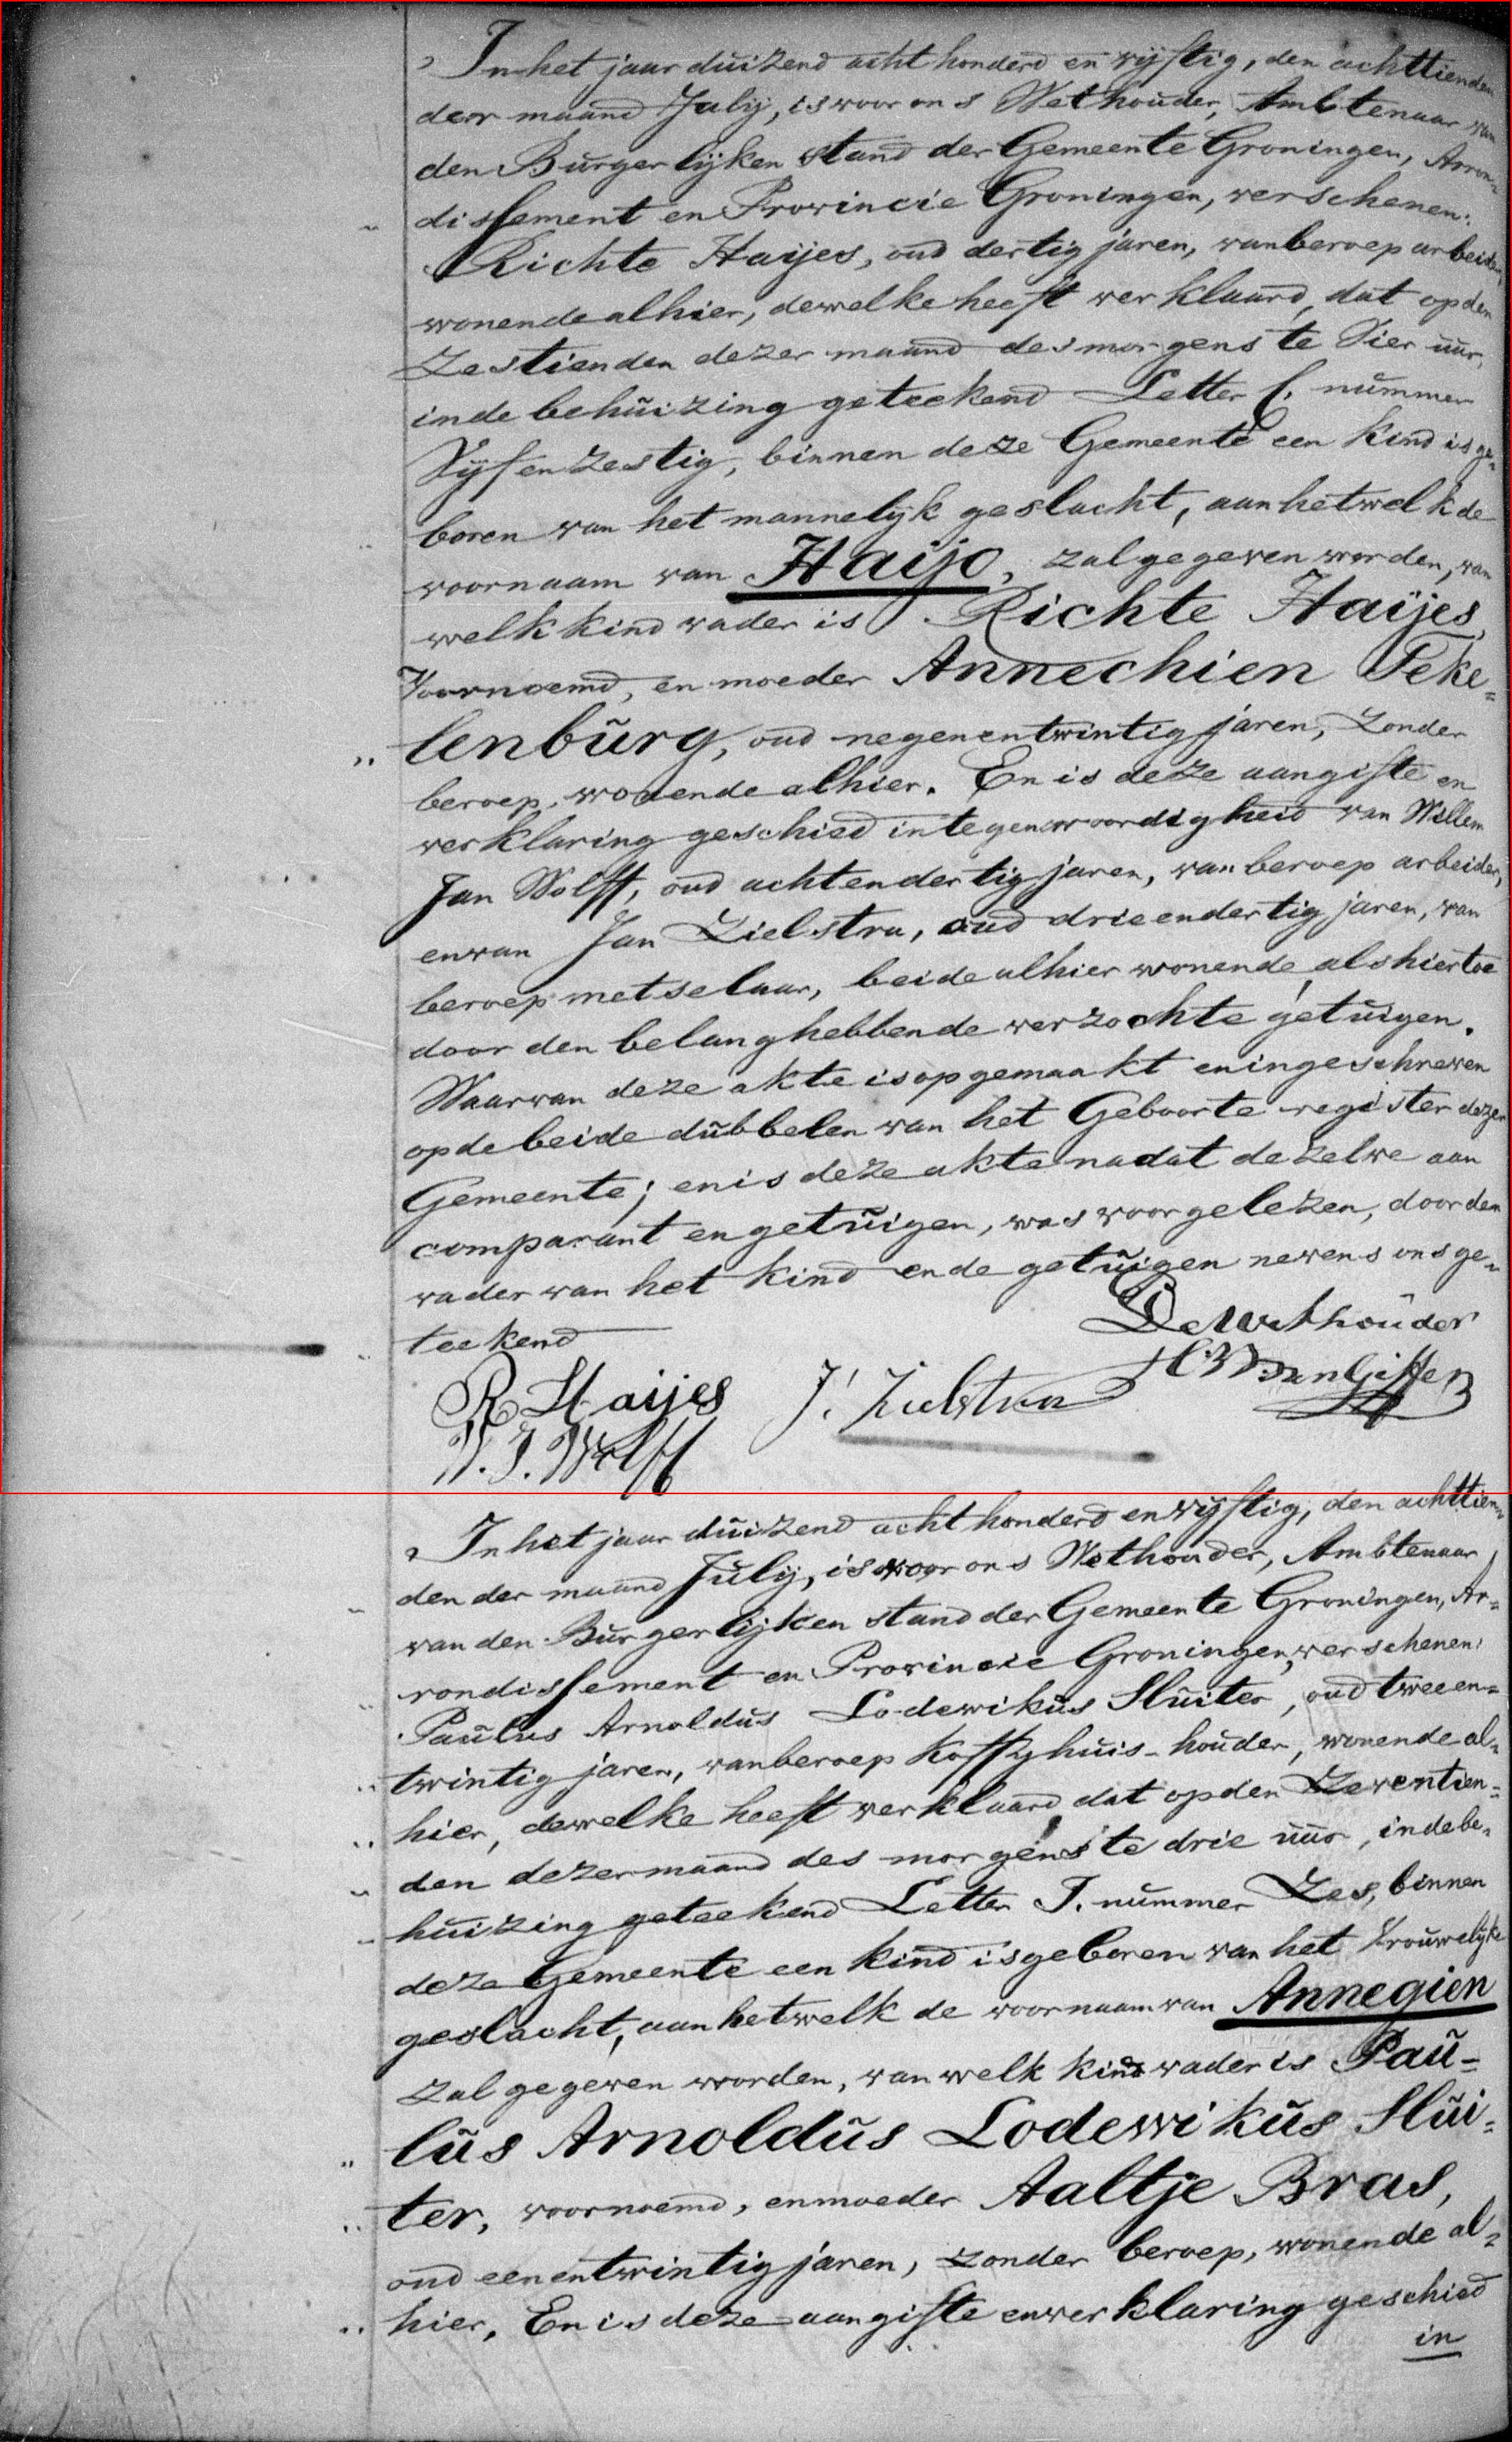 In het jaar duizend acht honderd en vijftig, den achttienden
der maand July, is voor ons Wethouder, Ambtenaar van
den Burgerlijken stand der Gemeente Groningen, Arron=
dissement en Provincie Groningen, verschenen:
Richte Haijes, oud dertig jaren, van beroep arbeider,
wonende alhier, dewelke heeft verklaard, dat op den
Zestienden dezer maand des morgens te Vier uur,
in de behuizing geteekend Letter C. nummer
Vijf en zestig, binnen deze Gemeente een kind is ge=
boren van het mannelijk geslacht, aan hetwelk de
voornaam van Haijo, zal gegeven worden, van
welk kind vader is Richte Haijes,
Voornoemd, en moeder Annechien Teke=
lenburg, oud negenentwintig jaren, zonder
beroep, wonende alhier. En is deze aangifte en
verklaring geschied in tegenwoordigheid van Willem
Jan Wolff, oud achtendertig jaren, van beroep arbeider,
en van Jan Zielstra, oud drieendertig jaren, van
beroep metselaar, beide alhier wonende, als hiertoe
door den belanghebbende verzochte getuigen.
Waarvan deze akte is opgemaakt en ingeschreven
op de beide dubbelen van het Geboorte register dezer
Gemeente; en is deze akte nadat dezelve aan
comparant en getuigen, was voorgelezen, door den
vader van het kind en de getuigen nevens ons ge=
teekend
De Wethouder
R Haijes J. Zielstra van Giffen
W. J. Wolff
In het jaar duizend acht honderd en vijftig, den achttien=
den der maand July, is voor ons Wethouder, Ambtenaar
van den Burgerlijken stand der Gemeente Groningen, Ar=
rondissement en Provincie Groningen, verschenen:
Paulus Arnoldus Lodewikus Sluiter, oud tweeen=
twintig jaren, van beroep koffijhuis-houder, wonende al=
hier, dewelke heeft verklaard dat op den Zeventien=
den dezer maand des morgens te drie uur, in de be=
huizing geteekend Letter I. nummer Zes, binnen
deze Gemeente een kind is geboren van het Vrouwelijke
geslacht, aan hetwelk de voornaam van Annegien
zal gegeven worden, van welk kind vader is Pau=
lus Arnoldus Lodewikus Slui=
ter, voornoemd, en moeder Aaltje Bras,
oud eenentwintig jaren, zonder beroep, wonende al=
hier, En is deze aangifte en verklaring geschied
in